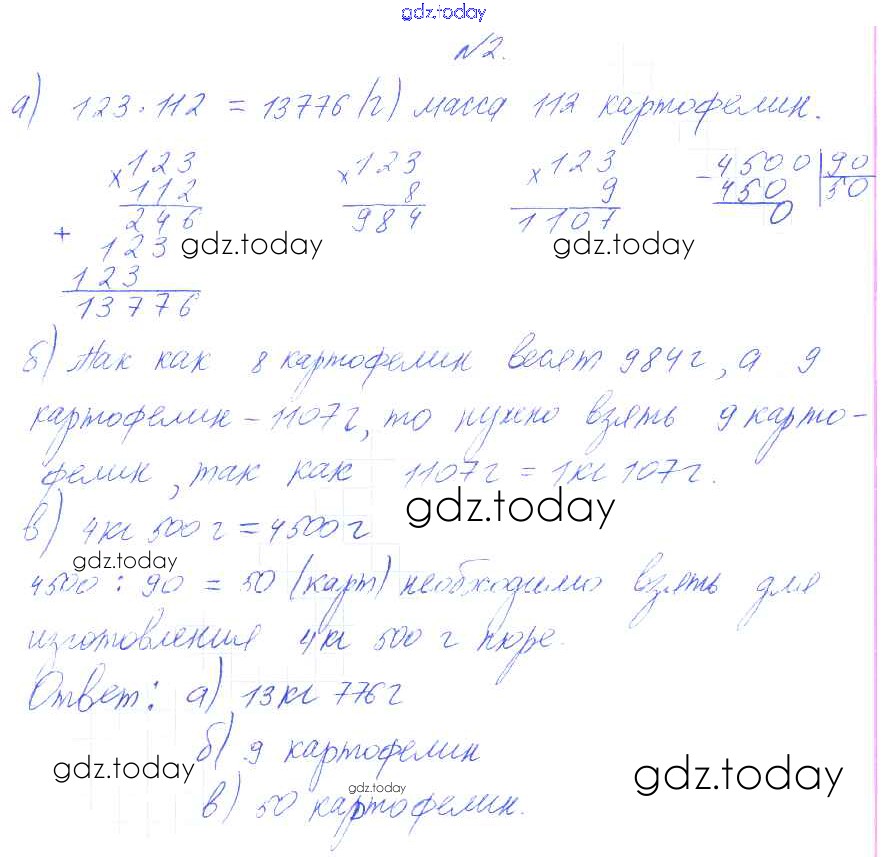 gdz.today
№2.
а) 123 · 112 = 13776 (г) масса 112 картофелин.
× 123
112
246
+ 123
123
13776
× 123
8
984
× 123
9
1107
- 4500 | 90
450 50
0
gdz.today
gdz.today
б) Так как 8 картофелин весят 984г, а 9
картофелин - 1107г, то нужно взять 9 карто-
фелин, так как 1107г = 1кг 107г.
gdz.today
в) 4кг 500г = 4500г
gdz.today
4500 : 90 = 50 (карт) необходимо взять для
изготовления 4кг 500 г пюре.
Ответ: а) 13кг 776г
б) 9 картофелин
gdz.today
gdz.today
gdz.today
в) 50 картофелин.